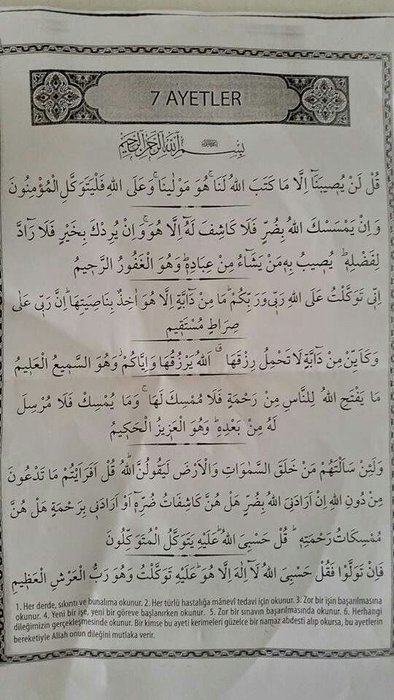 7 AYETLER
بِسْمِ اللّٰهِ الرَّحْمٰنِ الرَّحِيمِ
قُلْ لَنْ يُصِيبَنَٓا اِلَّا مَا كَتَبَ اللّٰهُ لَنَاۚ هُوَ مَوْلٰينَاۚ وَعَلَى اللّٰهِ فَلْيَتَوَكَّلِ الْمُؤْمِنُونَ
وَاِنْ يَمْسَسْكَ اللّٰهُ بِضُرٍّ فَلَا كَاشِفَ لَهُٓ اِلَّا هُوَۚ وَاِنْ يُرِدْكَ بِخَيْرٍ فَلَا رَٓادَّ
لِفَضْلِهٖۜ يُصِيبُ بِهٖ مَنْ يَشَٓاءُ مِنْ عِبَادِهٖۜ وَهُوَ الْغَفُورُ الرَّحٖيمُ
اِنّٖى تَوَكَّلْتُ عَلَى اللّٰهِ رَبّٖى وَرَبِّكُمْۜ مَا مِنْ دَٓابَّةٍ اِلَّا هُوَ اٰخِذٌ بِنَاصِيَتِهَاۜ اِنَّ رَبّٖى عَلٰى
صِرَاطٍ مُسْتَقٖيمٍ
وَكَاَيِّنْ مِنْ دَٓابَّةٍ لَا تَحْمِلُ رِزْقَهَاۗ اَللّٰهُ يَرْزُقُهَا وَاِيَّاكُمْۘ وَهُوَ السَّمٖيعُ الْعَلٖيمُ
مَا يَفْتَحِ اللّٰهُ لِلنَّاسِ مِنْ رَحْمَةٍ فَلَا مُمْسِكَ لَهَاۚ وَمَا يُمْسِكْ فَلَا مُرْسِلَ
لَهُ مِنْ بَعْدِهٖۜ وَهُوَ الْعَزٖيزُ الْحَكٖيمُ
وَلَئِنْ سَاَلْتَهُمْ مَنْ خَلَقَ السَّمٰوَاتِ وَالْاَرْضَ لَيَقُولُنَّ اللّٰهُۜ قُلْ اَفَرَاَيْتُمْ مَا تَدْعُونَ
مِنْ دُونِ اللّٰهِ اِنْ اَرَادَنِىَ اللّٰهُ بِضُرٍّ هَلْ هُنَّ كَاشِفَاتُ ضُرِّهٖٓ اَوْ اَرَادَنٖى بِرَحْمَةٍ هَلْ هُنَّ
مُمْسِكَاتُ رَحْمَتِهٖۜ قُلْ حَسْبِىَ اللّٰهُۜ عَلَيْهِ يَتَوَكَّلُ الْمُتَوَكِّلُونَ
فَاِنْ تَوَلَّوْا فَقُلْ حَسْبِىَ اللّٰهُۘ لَٓا اِلٰهَ اِلَّا هُوَۜ عَلَيْهِ تَوَكَّلْتُ وَهُوَ رَبُّ الْعَرْشِ الْعَظٖيمِ
1. Her derde, sıkıntı ve bunalıma okunur. 2. Her türlü hastalığa mânevî tedavi için okunur. 3. Zor bir işin başarılmasına
okunur. 4. Yeni bir işe, yeni bir göreve başlanırken okunur. 5. Zor bir sınavın başarılmasında okunur. 6. Herhangi
dileğimizin gerçekleşmesinde okunur. Bir kimse bu ayeti kerimeleri güzelce bir namaz abdesti alıp okursa, bu ayetlerin
bereketiyle Allah onun dileğini mutlaka verir.